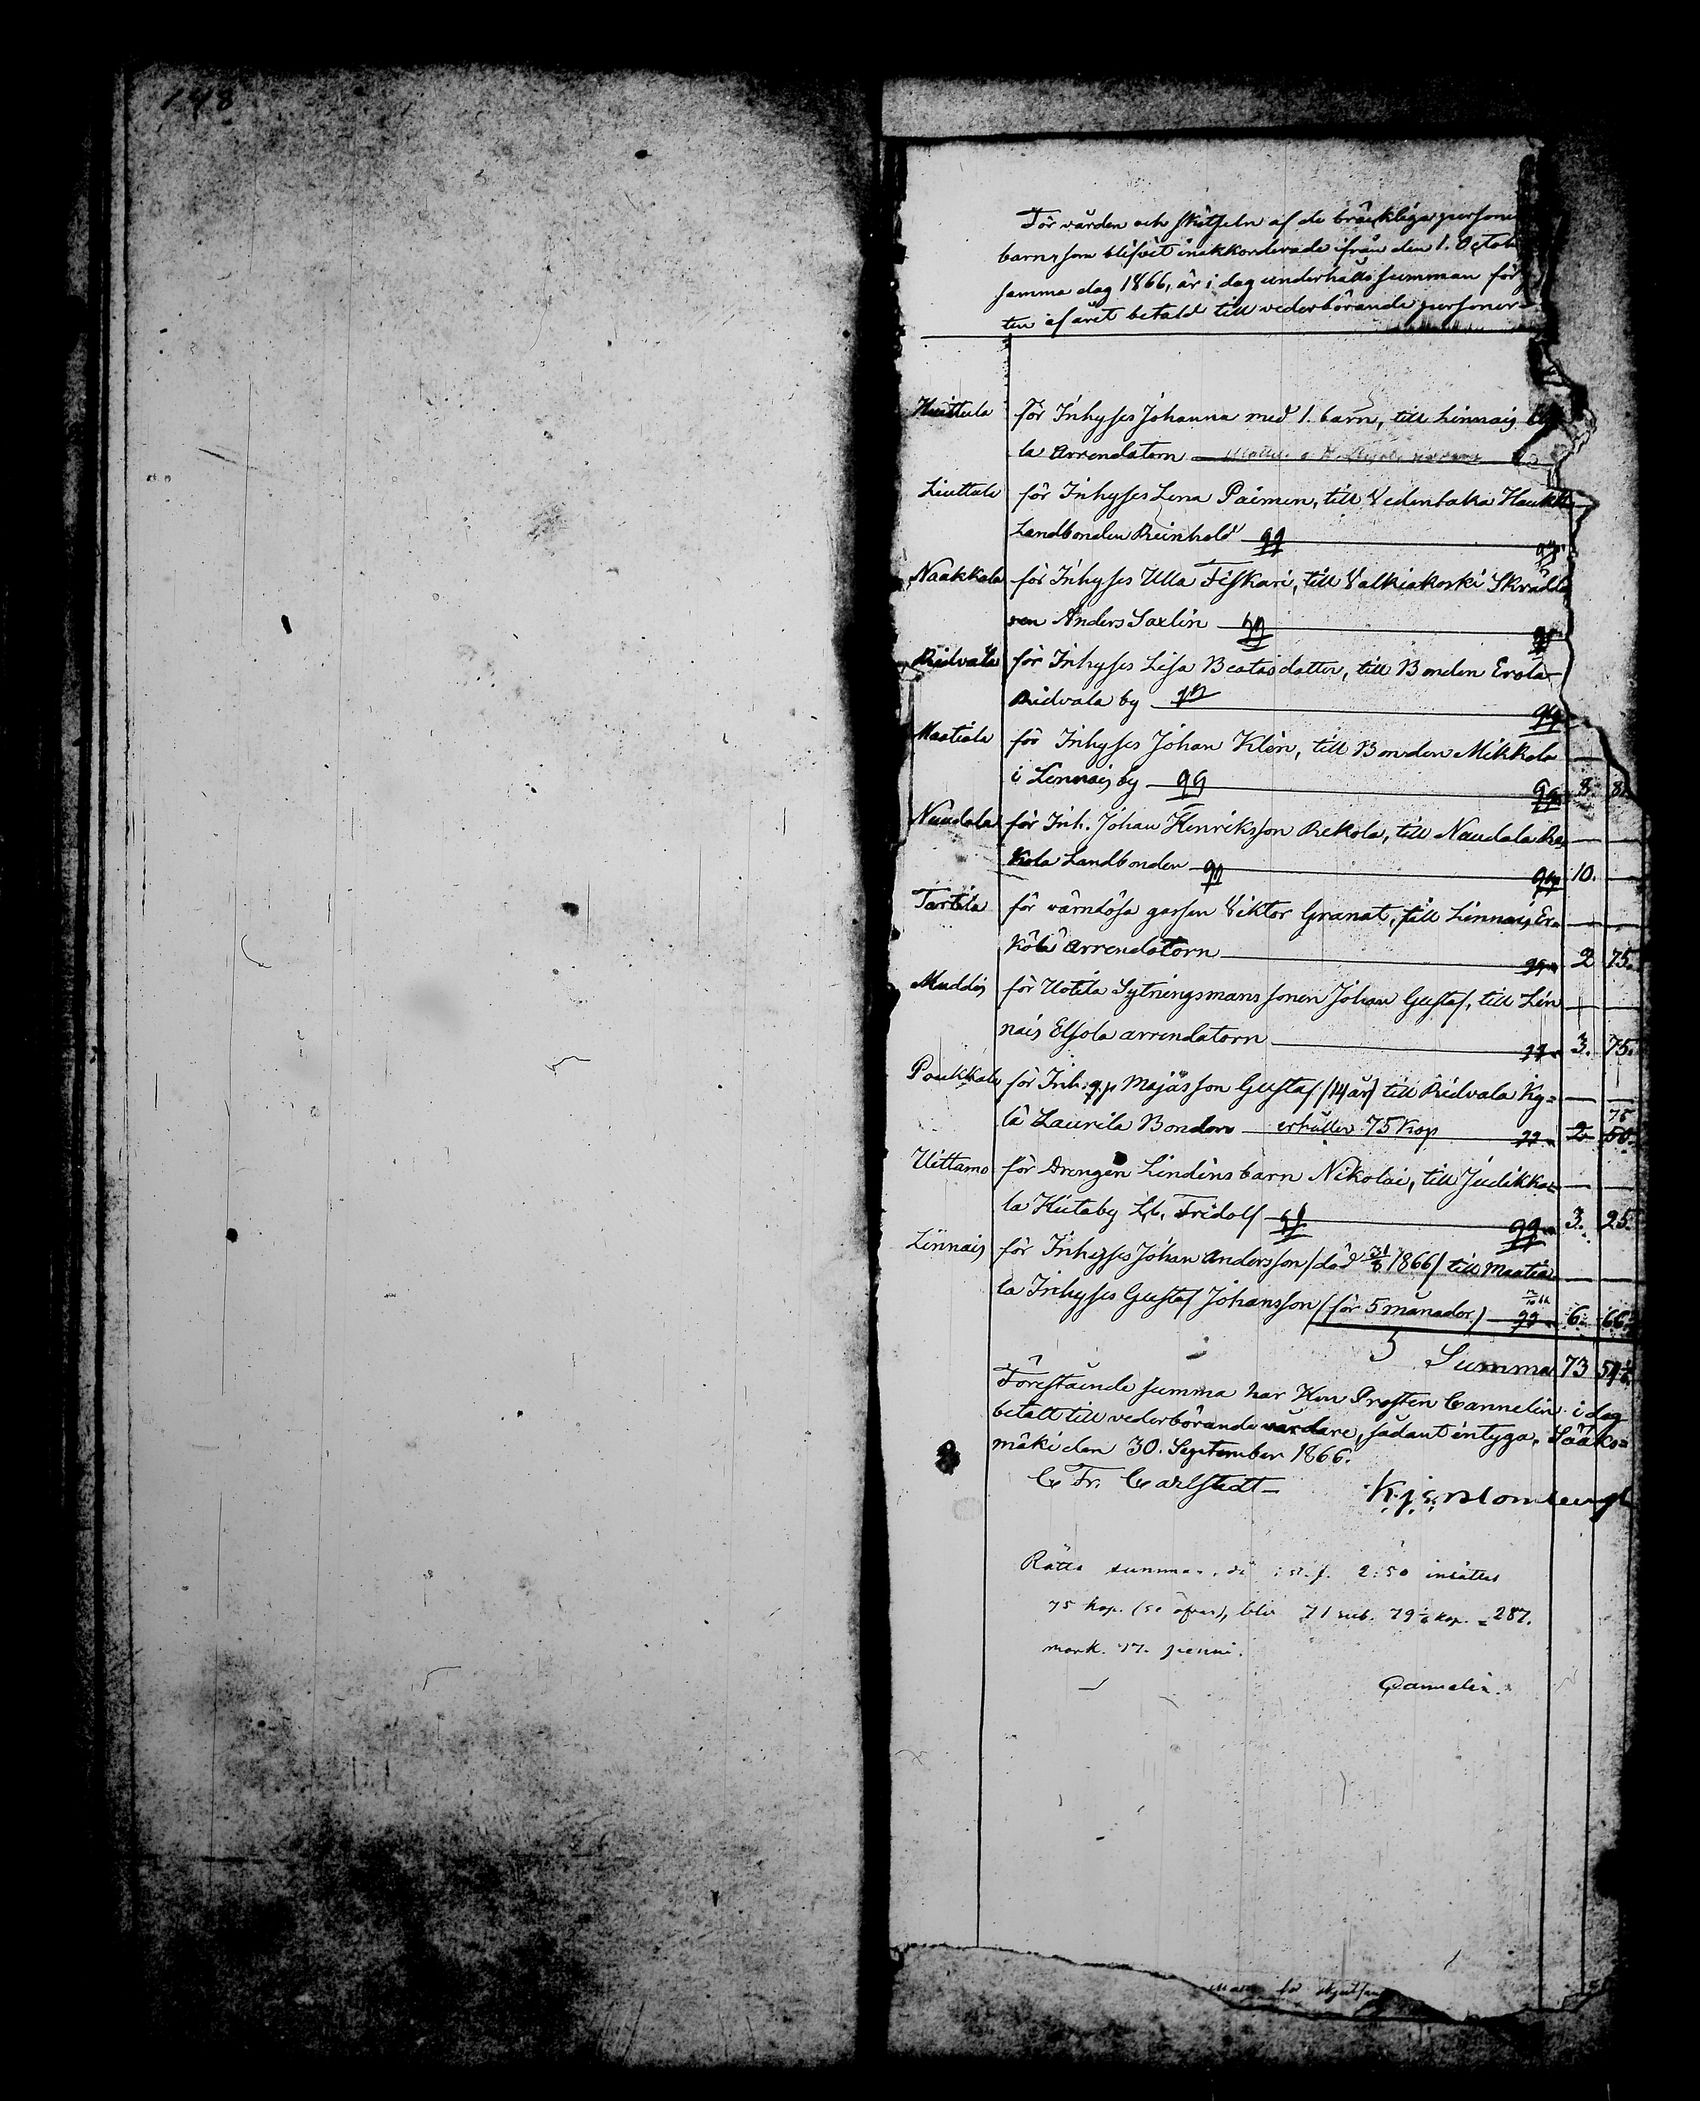 148
För vården och skötseln af de bräckliga persone
barn, som blifvit inakkorderade ifrån den 1. Octob
samma dag 1866, är i dag underhålls summan för
ten af året betald till vederbörande personer
Huittula för Inhyses Johanna med 1. barn, till Linnais
la Arrendatorn
Liuttula för Inhyses Lena Paimen, till Vedentaka Haukk
Landbonden Reinhold
Naakkala för Inhyses Ulla Fiskari, till Valkiakoski Skrädda
ren Anders Saxlin
Ridvala för Inhyses Lisa Beatasdotter, till Bonden Erola
Ridvala by
Maatiala för Inhyses Johan Klén, till Bonden Mikkola
i Linnais by 8. 8
Naudala för Inh. Johan Henriksson Rekola, till Naudala Re
kola Landbonden 10.
Tartila för värnlösa gossen Viktor Granat, till Linnais Er=
kölä Arrendatorn 2 75.
Muddis för Uotila Sytningsmans sonen Johan Gustaf, till Lin
nais Elsola arrendatorn 3. 75.
Poukkala för Inh: Majasson Gustaf /14 år/ till Ridvala Ky=
lä Laurila Bonden erhåller 75 kop 2 50. 75
Uittamo för Drengen Lindins barn Nikolai, till Judikka=
la Hutaby Lb. Fridolf 3. 25.
Linnais för Inhyses Johan Andersson /död 31/8 1866/ till Maatia
la Inhyses Gustaf Johansson /för 5 månader/ 6. 66
Summa 73 54
Förestående summa har Herr Prosten Cannelin i dag
betalt till vederbörande vårdare, sådant intyga. Sääks=
mäki den 30. September 1866.
C. Fr. Carlstedt
Rätta summan, då i st. f. 2:50 insättes
75 kop. blir 71 rub. 79 kop. = 287.
mark. 17. penni.
Cannelin.